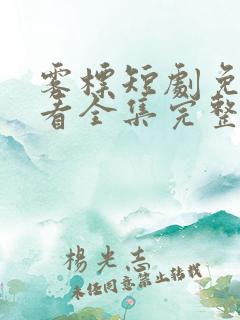 零標短劇免
看全集完整
楊光志
未经同意禁止转载